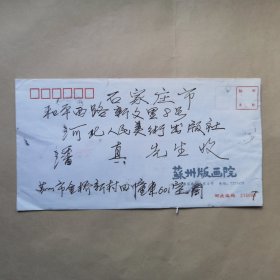 石家庄市
和平西路新文里8号
河北人民美術出版社
潘真 先生收
蘇州版画院
苏州市金橋新村四幢東601室 寄
邮政编码